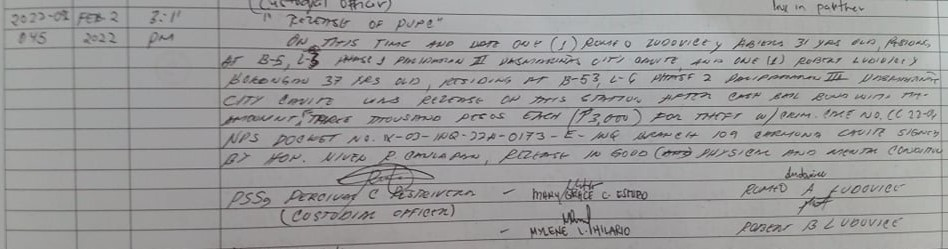 (Custodial officer) live in partner
2022-02 FEB-2 3:1" " RELEASE OF PUPC"
045 2022 PM ON THIS TIME AND DATE ONE (1) ROMEO LUDOVICE y ABIERA 31 YRS OLD, RESIDING
AT B-5, L-3 PHASE 1 PALIPARAN II DASMARIÑAS CITY CAVITE AND ONE (1) ROBERT LUDOVICE y
BORONGAN 37 YRS OLD, RESIDING AT B-53, L-6 PHASE 2 PALIPARAN III DASMARIÑAS
CITY CAVITE WAS RELEASE ON THIS STATION AFTER CASH BAIL BOND WITH THE
AMOUNT, THREE THOUSAND PESOS EACH (₱3,000) FOR THEFT W/CRIM. CASE NO. CC 22-
NPS DOCKET NO. IV-02-INQ-22A-0173-E-INQ BRANCH 109 CARMONA CAVITE SIGNED
BY HON. NIVEN R CANLAPAN, RELEASE IN GOOD PHYSICAL AND MENTAL CONDITION
PSSg PERCIVAL C RESTRIVERA - MARY GRACE C. ESTURO ROMEO A LUDOVICE
(CUSTODIAL OFFICER)
- MYLENE L. HILARIO ROBERT B LUDOVICE